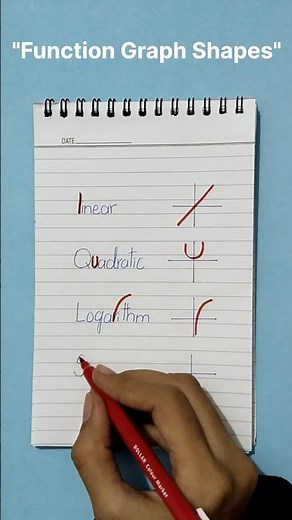 "Function Graph Shapes"
DATE
linear
Quadratic
Logarithm
DOLLAR Colour Marker